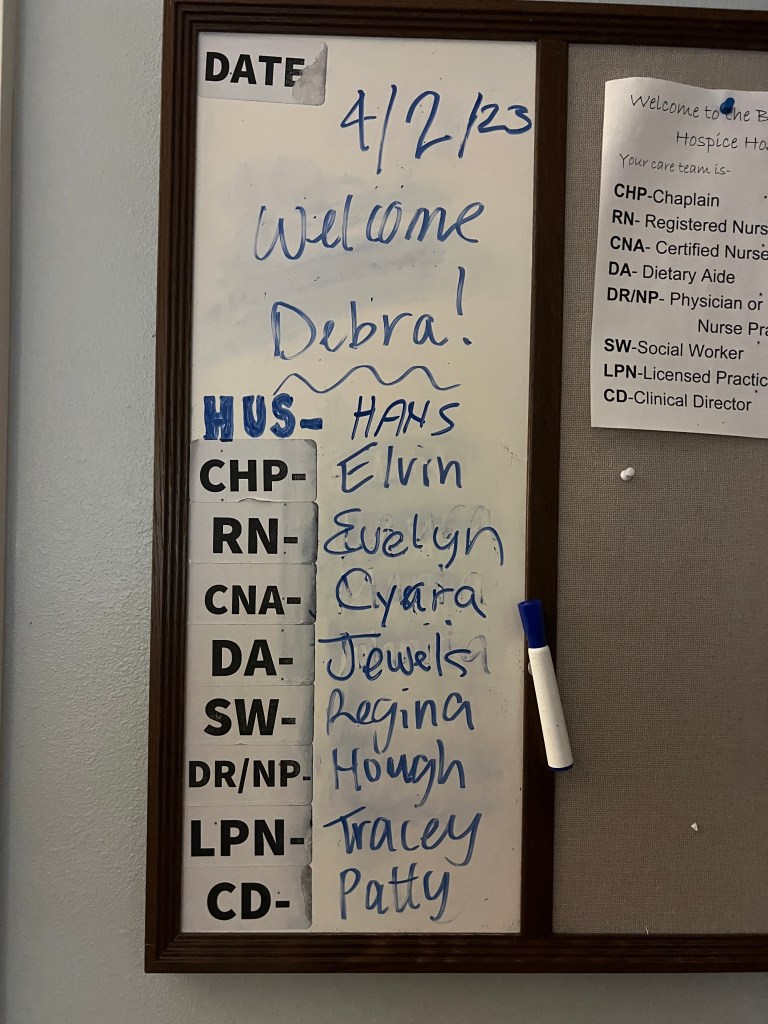 DATE
4/2/23
Welcome
Debra!
HUS- HANS
CHP- Elvin
RN- Evelyn
CNA- Cyara
DA- Jewels
SW- Regina
DR/NP- Hough
LPN- Tracey
CD- Patty
Welcome to the B
Hospice Ho
Your care team is-
CHP-Chaplain
RN- Registered Nurs
CNA- Certified Nurse
DA- Dietary Aide
DR/NP- Physician or
Nurse Pra
SW-Social Worker
LPN-Licensed Practic
CD-Clinical Director